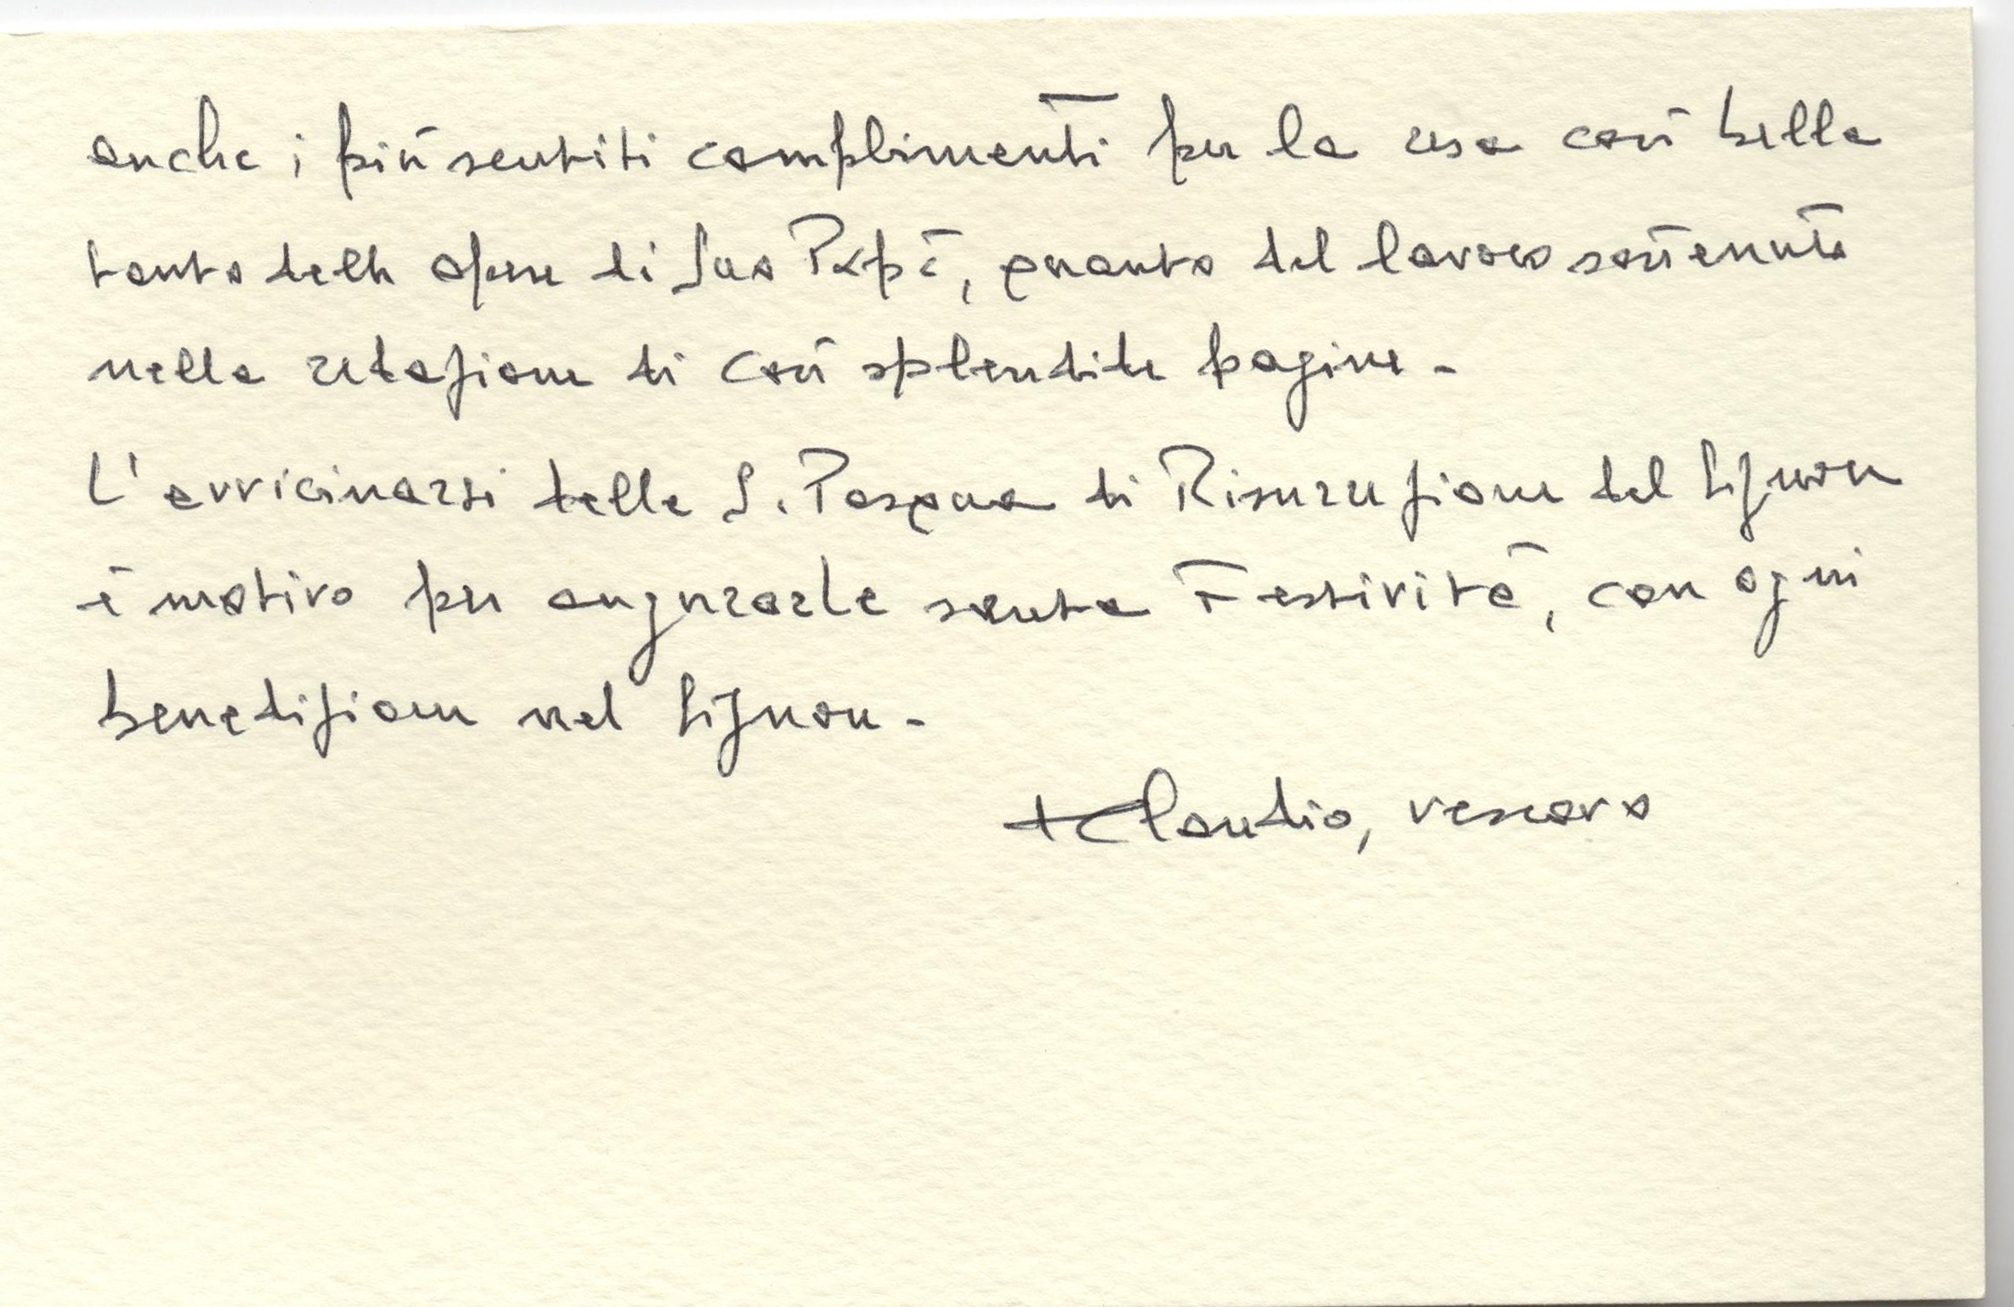 anche i più sentiti complimenti per la resa così bella
tanto delle opere di Suo Papà, quanto del lavoro sostenuto
nella redazione di così splendide pagine -
L'avvicinarsi della S. Pasqua di Risurrezione del Signore
è motivo per augurarle santa Festività, con ogni
benedizione nel Signore -
+ Claudio, vescovo